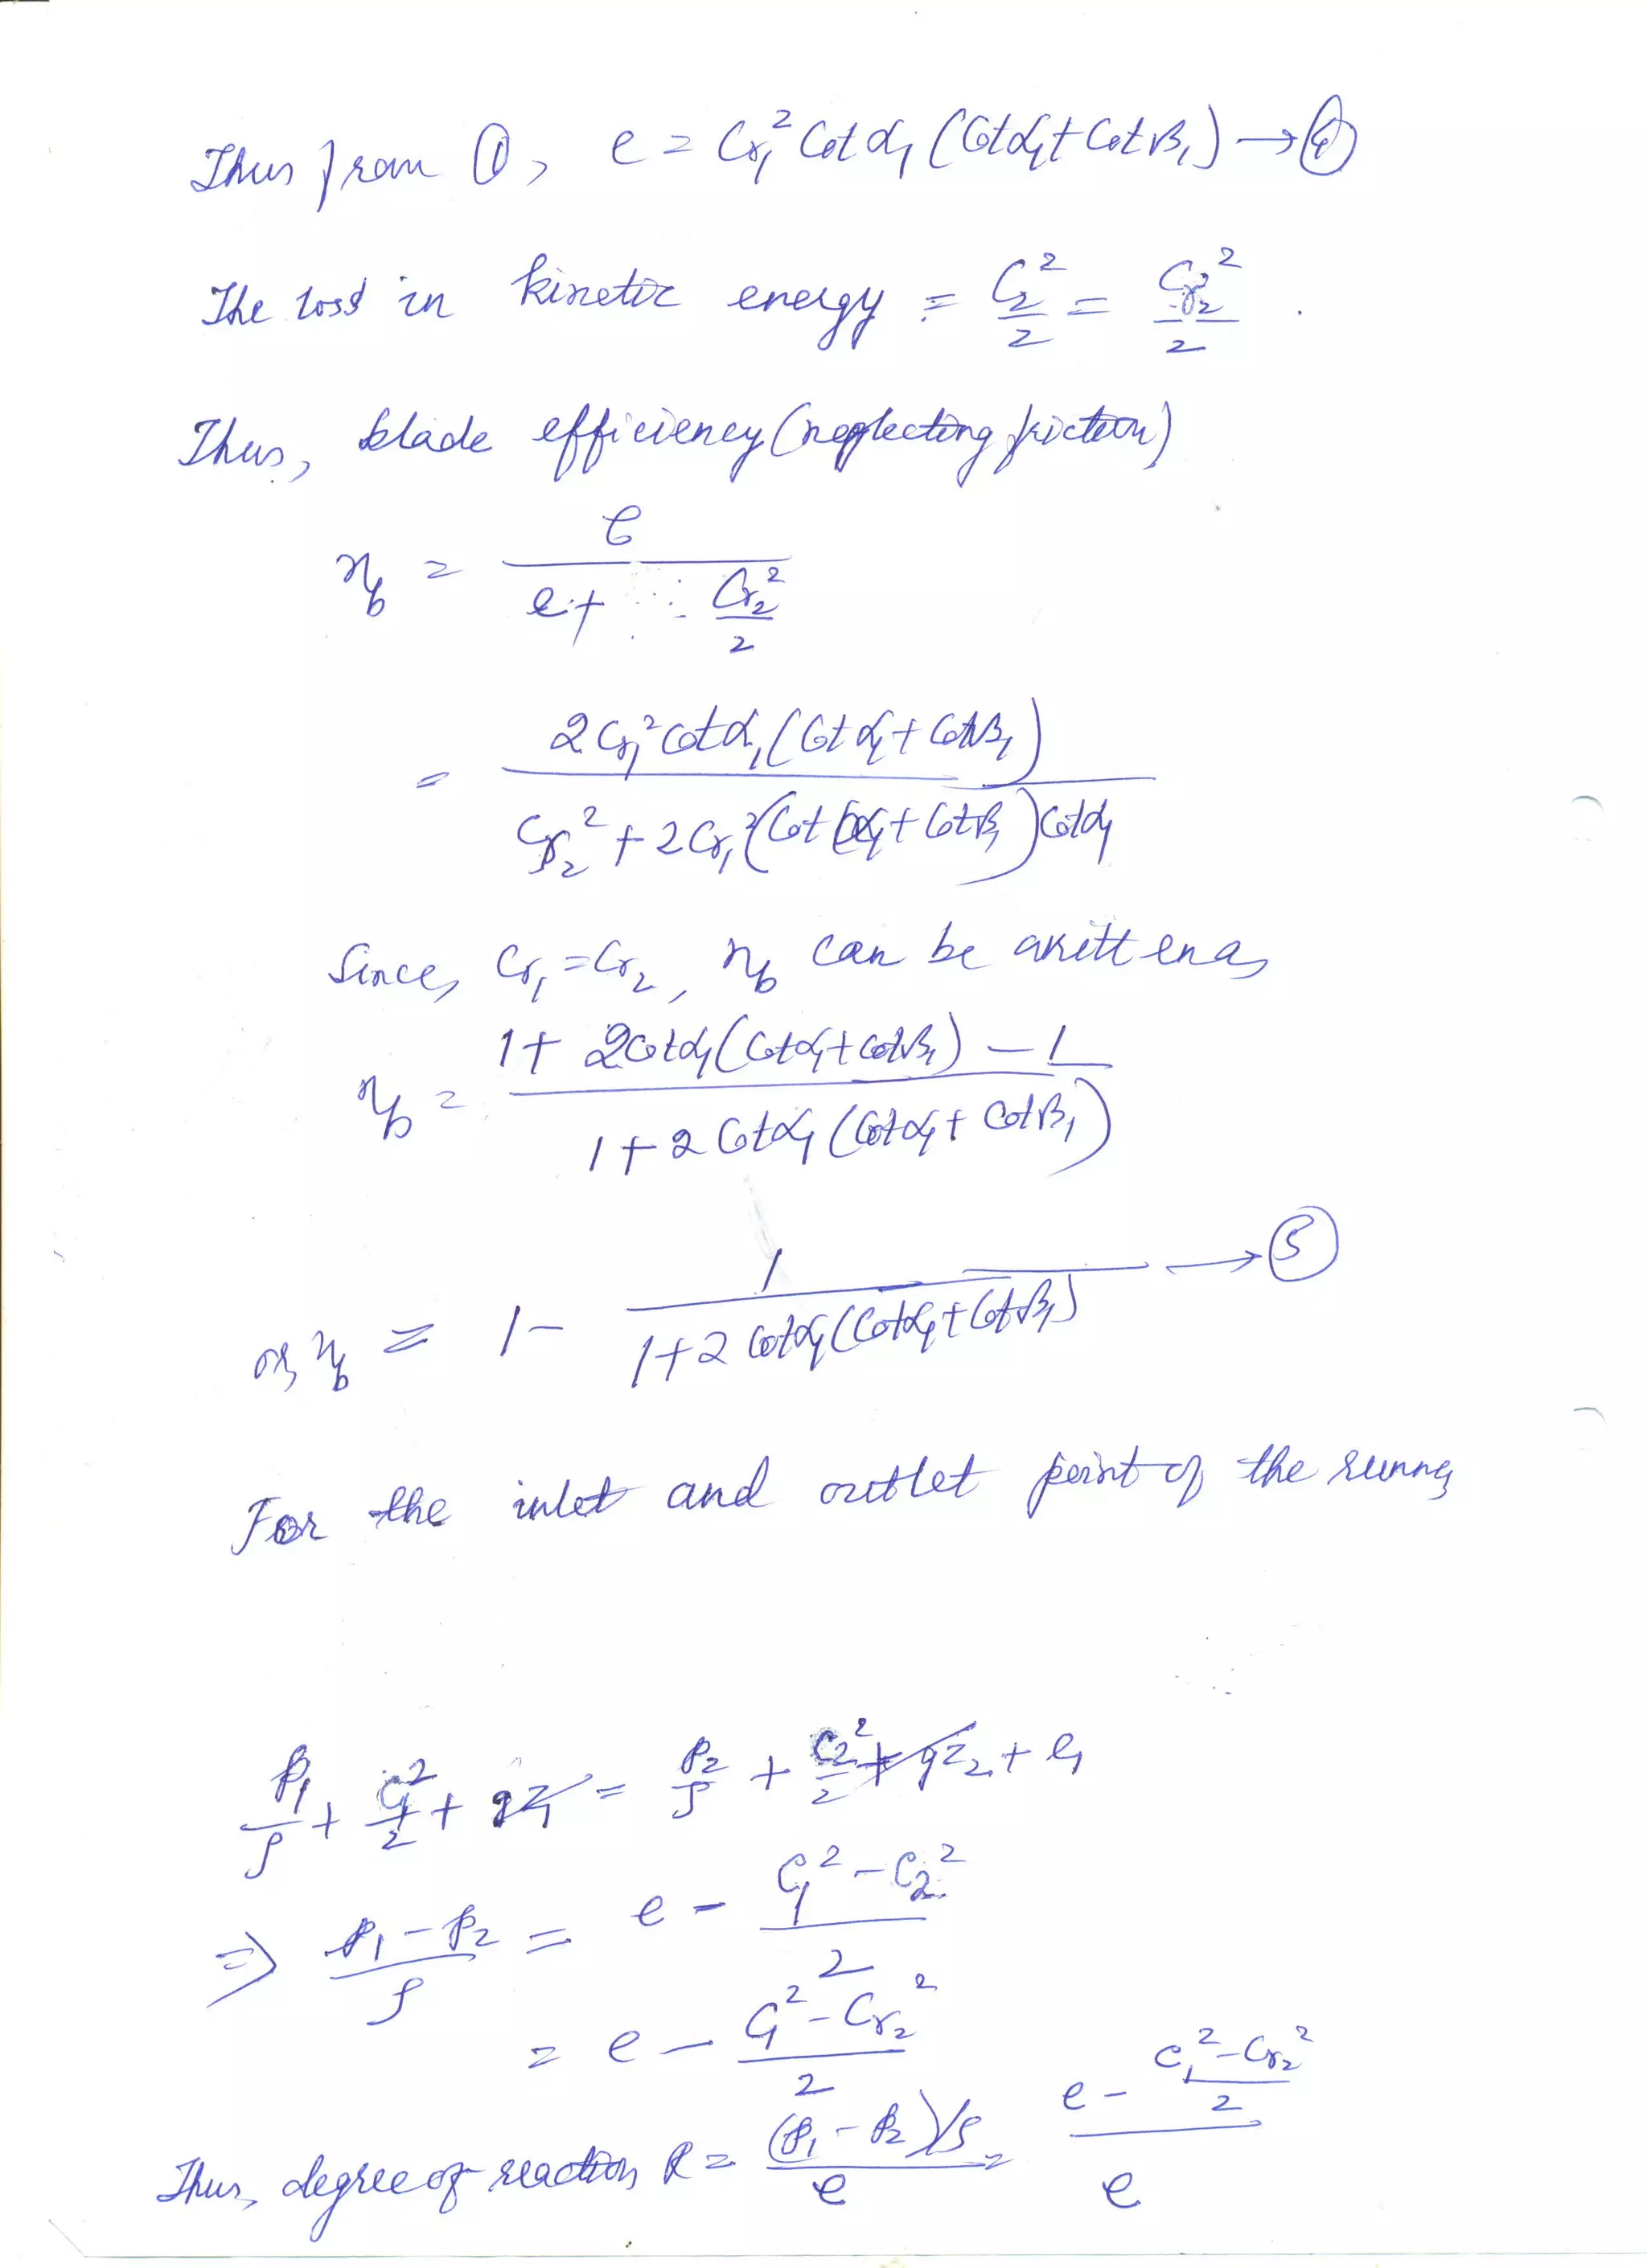 Thus from ①, e = Cr₁² Cot α₁ (Cot α₁ + Cot β₁) → ④
The loss in kinetic energy = C₂²/2 = Cr₂²/2 .
Thus, blade efficiency (neglecting friction)
η_b = e / (e + Cr₂²/2)
= 2 Cr₁² cot α₁ (Cot α₁ + Cot β₁) / (Cr₂² + 2 Cr₁² (Cot α₁ + Cot β₁) Cot α₁)
Since, Cr₁ = Cr₂, η_b can be written as,
η_b = (1 + 2 Cot α₁ (Cot α₁ + Cot β₁) − 1) / (1 + 2 Cot α₁ (Cot α₁ + Cot β₁))
or, η_b = 1 − 1 / (1 + 2 Cot α₁ (Cot α₁ + Cot β₁)) → ⑤
For the inlet and outlet point of the runner
p₁/ρ + C₁²/2 + gZ₁ = p₂/ρ + C₂²/2 + gZ₂ + e,
⇒ (p₁ − p₂)/ρ = e − (C₁² − C₂²)/2
= e − (C₁² − Cr₂²)/2
Thus, degree of reaction R = (p₁ − p₂)/ρ / e = (e − (C₁² − Cr₂²)/2) / e